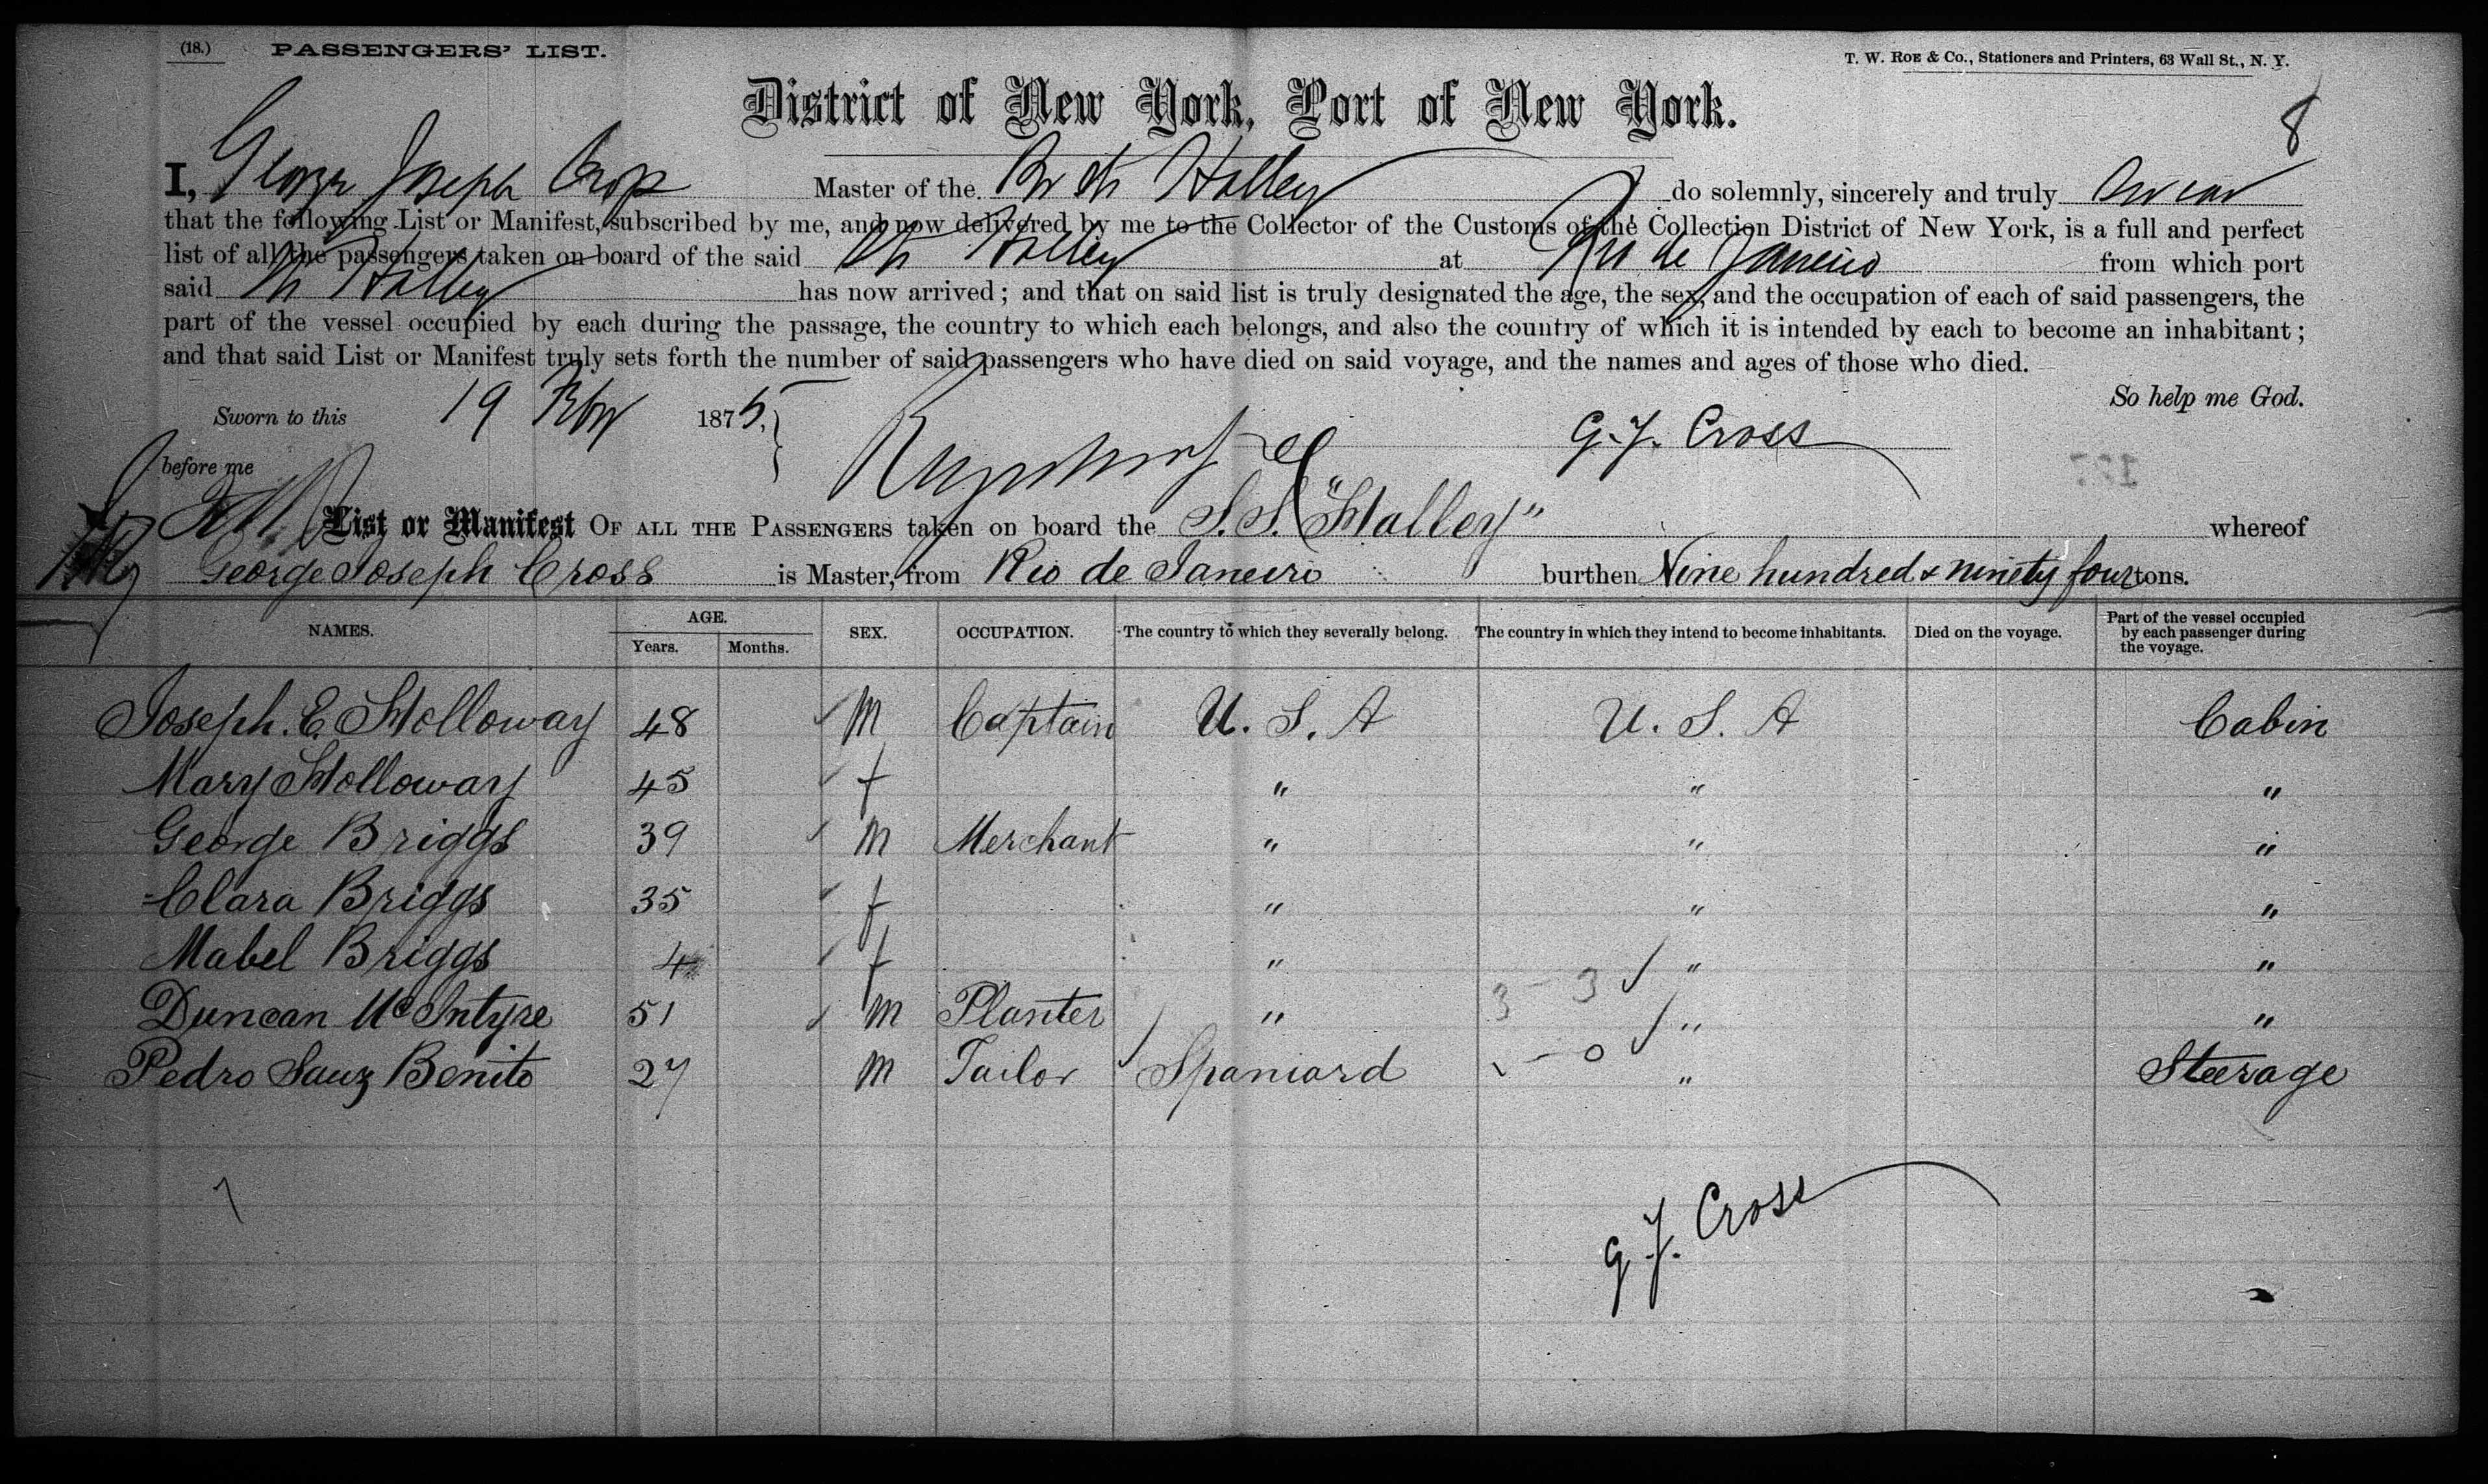 (18.) PASSENGERS' LIST. T. W. ROE & Co., Stationers and Printers, 63 Wall St., N. Y.
8
District of New York, Port of New York.
I, George Joseph Cross Master of the Br Str Halley do solemnly, sincerely and truly Swear
that the following List or Manifest, subscribed by me, and now delivered by me to the Collector of the Customs of the Collection District of New York, is a full and perfect
list of all the passengers taken on board of the said Str Halley at Rio de Janeiro from which port
said Str Halley has now arrived; and that on said list is truly designated the age, the sex, and the occupation of each of said passengers, the
part of the vessel occupied by each during the passage, the country to which each belongs, and also the country of which it is intended by each to become an inhabitant;
and that said List or Manifest truly sets forth the number of said passengers who have died on said voyage, and the names and ages of those who died.
So help me God.
Sworn to this 19 Feby 1875, G. J. Cross
before me
List or Manifest OF ALL THE PASSENGERS taken on board the S.S. "Halley" whereof
George Joseph Cross is Master, from Rio de Janeiro burthen Nine hundred & ninety four tons.
NAMES. AGE. Years. Months. SEX. OCCUPATION. The country to which they severally belong. The country in which they intend to become inhabitants. Died on the voyage. Part of the vessel occupied by each passenger during the voyage.
Joseph. E. Holloway 48 M Captain U. S. A U. S. A Cabin
Mary Holloway 45 f " " "
George Briggs 39 M Merchant " " "
Clara Briggs 35 f " " "
Mabel Briggs 4 f " " "
Duncan McIntyre 51 M Planter " 3 - 3 " "
Pedro Sauz Benito 27 M Tailor Spaniard 1 - 0 " Steerage
G. J. Cross